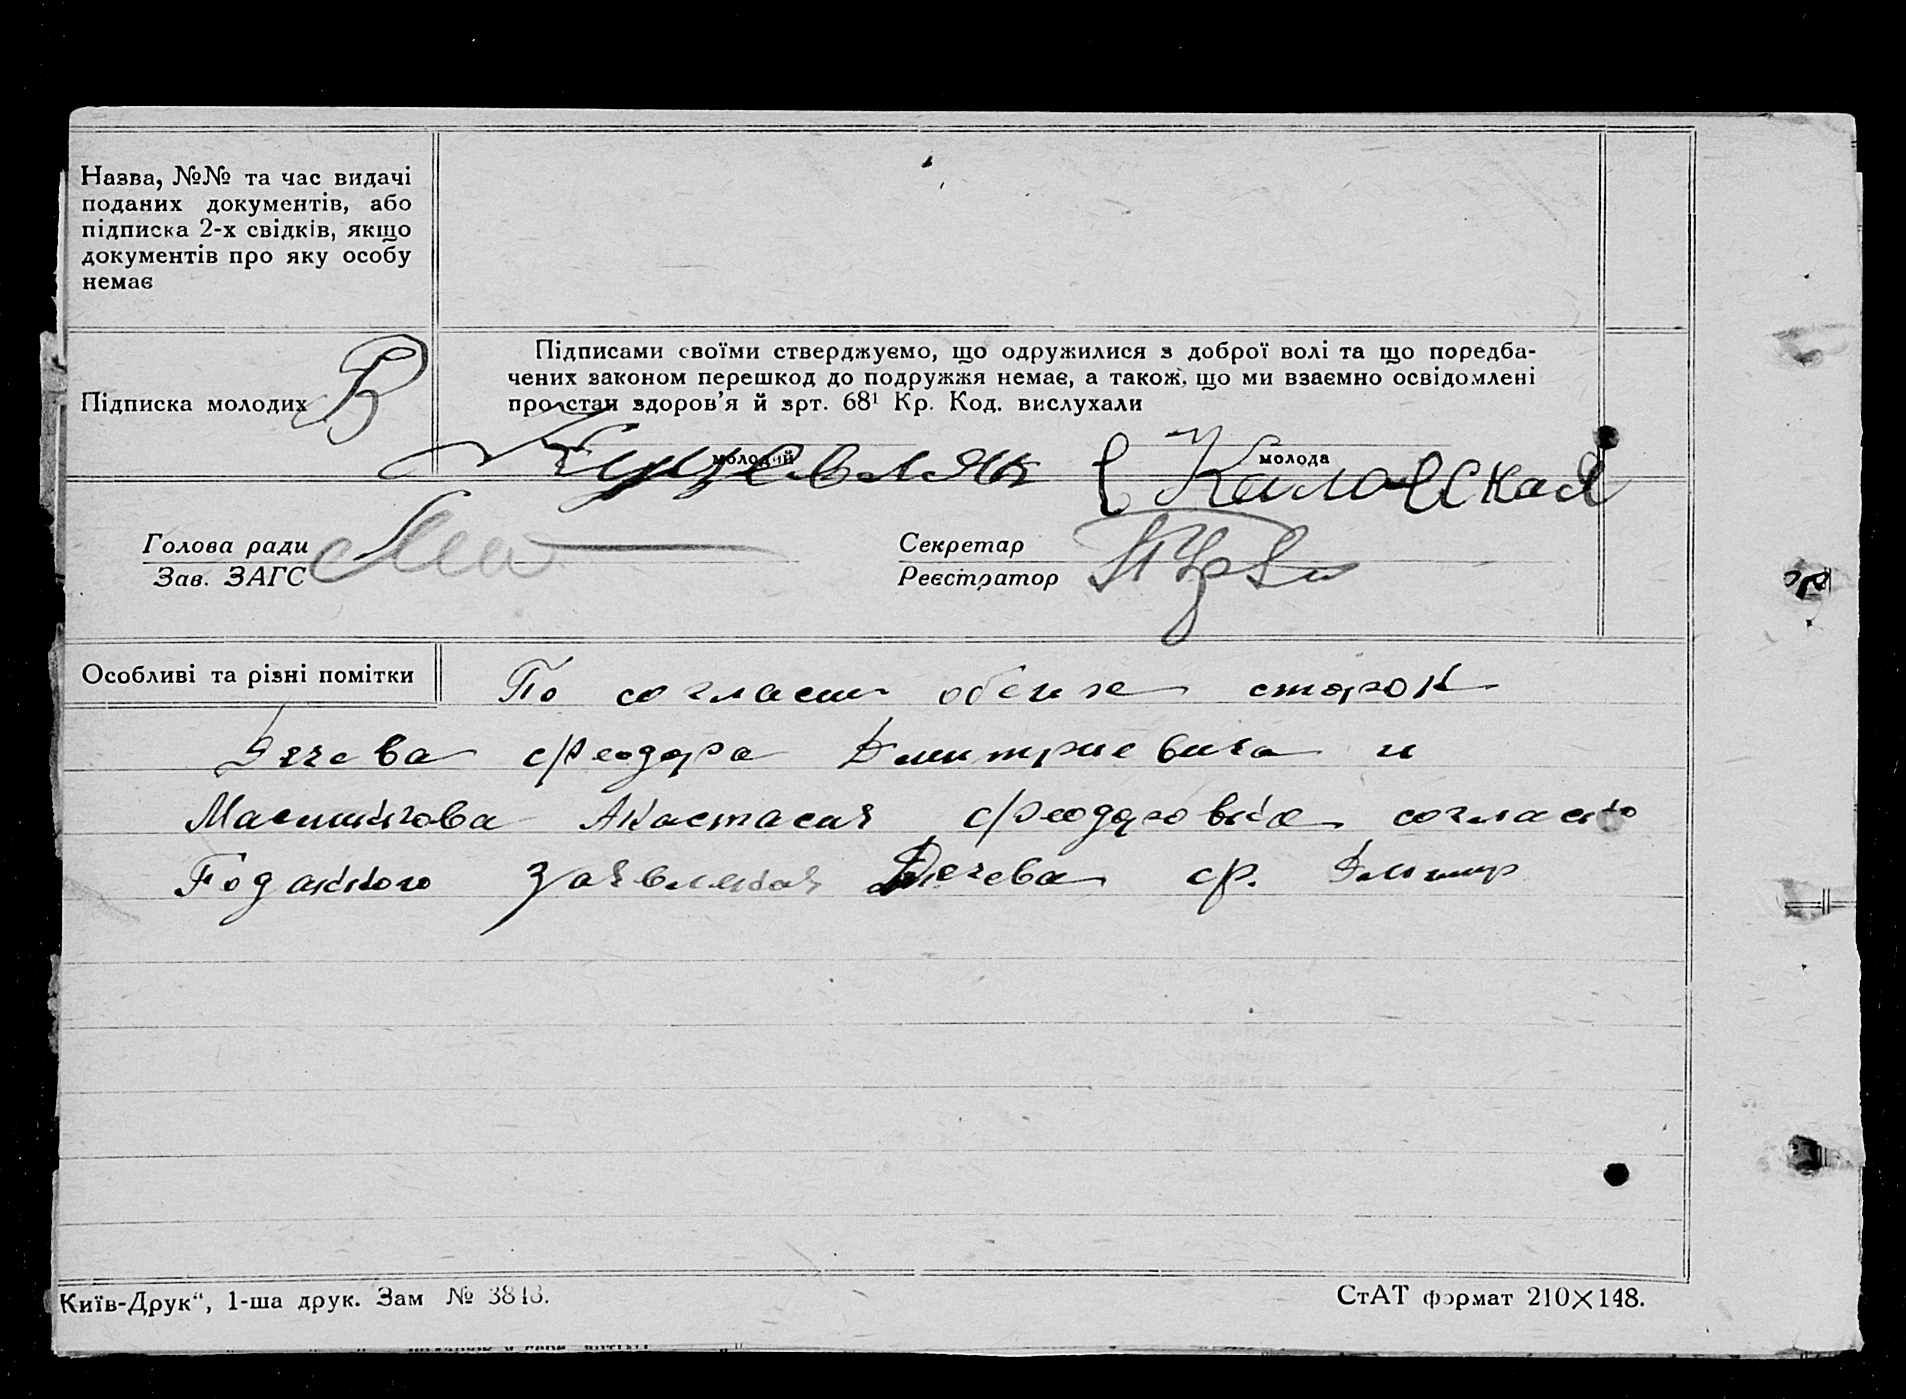 Назва, №№ та час видачі
поданих документів, або
підписка 2-х свідків, якщо
документів про яку особу
немає
Підписка молодих
Підписами своїми стверджуємо, що одружилися з доброї волі та що поредба-
чених законом перешкод до подружжя немає, а також, що ми взаємно освідомлені
про стан здоров'я й зрт. 68¹ Кр. Код. вислухали
молодий
молода
Голова ради
Зав. ЗАГС
Секретар
Реєстратор
Особливі та різні помітки
По согласии обеих сторон
Феодора Дмитриевича и
Анастасия Феодоровна согласно
Поданного заявления Дячева Ф. Дмитр
Київ-Друк“, 1-ша друк. Зам № 3818.
СтАТ формат 210×148.